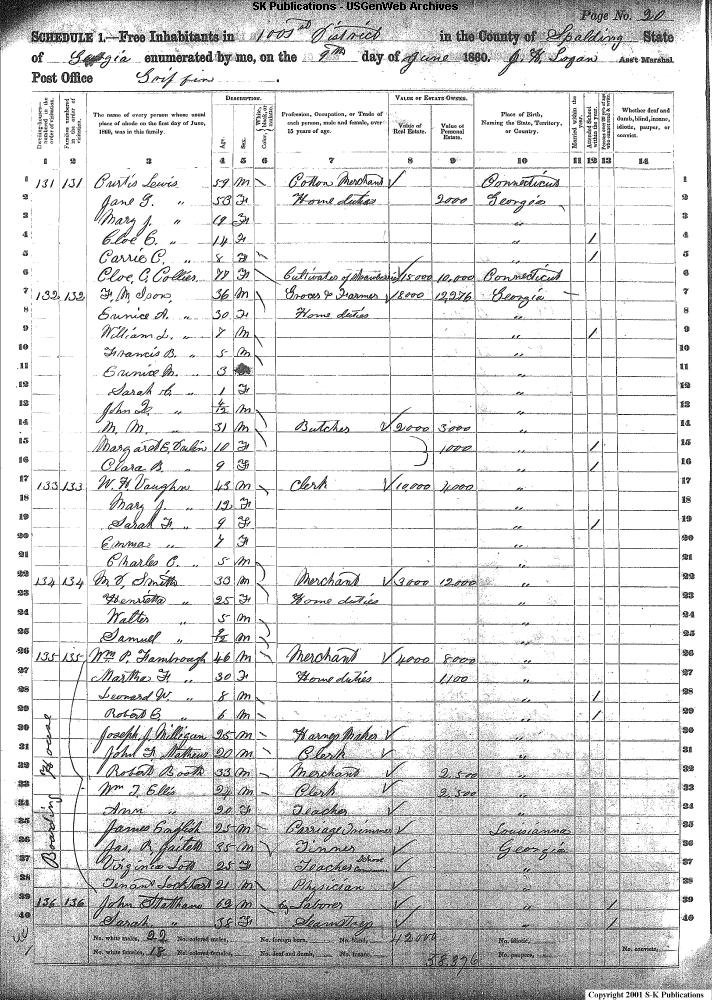 SK Publications - USGenWeb Archives
Page No. 20
SCHEDULE 1.—Free Inhabitants in 1001st District in the County of Spalding State
of Georgia enumerated by me, on the 9th day of June 1860. Ass't Marshal.
Post Office Griffin
DESCRIPTION. VALUE OF ESTATE OWNED.
Dwelling-houses—numbered in the order of visitation. Families numbered in the order of visitation. The name of every person whose usual place of abode on the first day of June, 1860, was in this family. Age. Sex. Color, Profession, Occupation, or Trade of each person, male and female, over 15 years of age. Value of Real Estate. Value of Personal Estate. Place of Birth, Naming the State, Territory, or Country. Married within the year. Attended School within the year. Whether deaf and dumb, blind, insane, idiotic, pauper, or convict.
1 2 3 4 5 6 7 8 9 10 11 12 13 14
1 131 131 Curtis Lewis 59 M Cotton Merchant Connecticut 1
2 Jane G. " 53 F Home duties 2000 Georgia 2
3 Mary J. " 19 F " 3
4 Cloe C. " 14 F " / 4
5 Carrie C. " 8 F " / 5
6 Cloe C. Collier 77 F 15000 10,000 Connecticut 6
7 132 132 F. M. Ison 36 M Grocer & Farmer 18000 12,276 Georgia 7
8 Eunice A. " 30 F Home duties " 8
9 William L. " 7 M " / 9
10 Francis B. " 5 M " 10
11 Eunice M. " 3 " 11
12 Sarah C. " 1 F " 12
13 John " 4/12 M " 13
14 M. M. " 31 M Butcher 2000 3000 " 14
15 Margaret E. 10 F 1000 " / 15
16 Clara B. " 9 F " / 16
17 133 133 W. H. Vaughn 43 M Clerk 10,000 4000 " 17
18 Mary J. " 12 F " 18
19 Sarah F. " 9 F " / 19
20 Emma " 7 F " 20
21 Charles C. " 5 M " 21
22 134 134 M. D. Smith 33 M Merchant 3000 12000 " 22
23 Henrietta " 25 F Home duties " 23
24 Walter " 5 M " 24
25 Samuel " 9/12 M " 25
26 135 135 Wm P. Hambrough 46 M Merchant 4000 8000 " 26
27 Martha F. " 30 F Home duties 1100 " 27
28 Leonard W. " 8 M " / 28
29 Robert E. " 6 M " / 29
30 Joseph J. Milligan 25 M Harness Maker " 30
31 John F. Mathews 20 M Clerk " 31
32 Robert Booth 33 M Merchant 2,500 " 32
33 Wm T. Ellis 24 M Clerk 2,500 " 33
34 Ann " 20 F Teacher " 34
35 James English 25 M Carriage Trimmer Louisianna 35
36 Jas. R. 35 M Tinner Georgia 36
37 Virginia Lott 25 F School Teacher " 37
38 Lockhart 21 M Physician " 38
39 136 136 John 62 M Laborer " / 39
40 Sarah " 38 F Seamstress " / 40
Boarding House
No. white males, 22 No. colored males, No. foreign born, No. blind, 42000 No. idiotic,
No. white females, 18 No. colored females, No. deaf and dumb, No. insane, 58,276 No. paupers, No. convicts,
Copyright 2001 S-K Publications